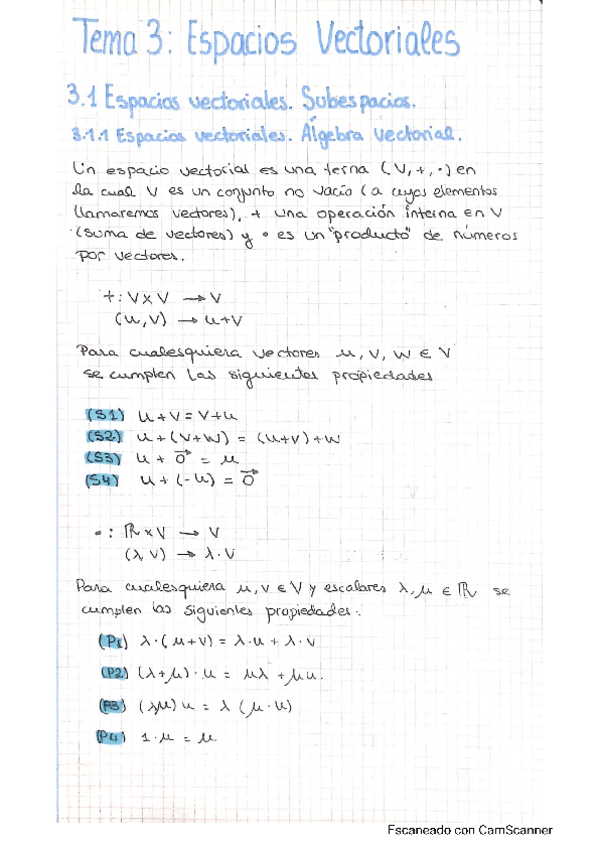 Tema 3: Espacios Vectoriales
3.1 Espacios vectoriales. Subespacios.
3.1.1 Espacios vectoriales. Álgebra Vectorial.
Un espacio vectorial es una terna (V, +, ·) en
la cual V es un conjunto no vacío (a cuyos elementos
llamaremos vectores), + una operación interna en V
(suma de vectores) y · es un "producto" de números
por vectores.
+: V x V → V
(u, v) → u+v
Para cualesquiera vectores u, v, w ∈ V
se cumplen las siguientes propiedades
(S1) u+v = v+u
(S2) u+(v+w) = (u+v)+w
(S3) u + 0⃗ = u
(S4) u+(-u) = 0⃗
· : ℝ x V → V
(λ, v) → λ·v
Para cualesquiera u, v ∈ V y escalares λ, μ ∈ ℝ se
cumplen las siguientes propiedades:
(P1) λ·(u+v) = λ·u + λ·v
(P2) (λ+μ)·u = uλ + μu.
(P3) (λμ)u = λ(μ·u)
(P4) 1·u = u
Escaneado con CamScanner